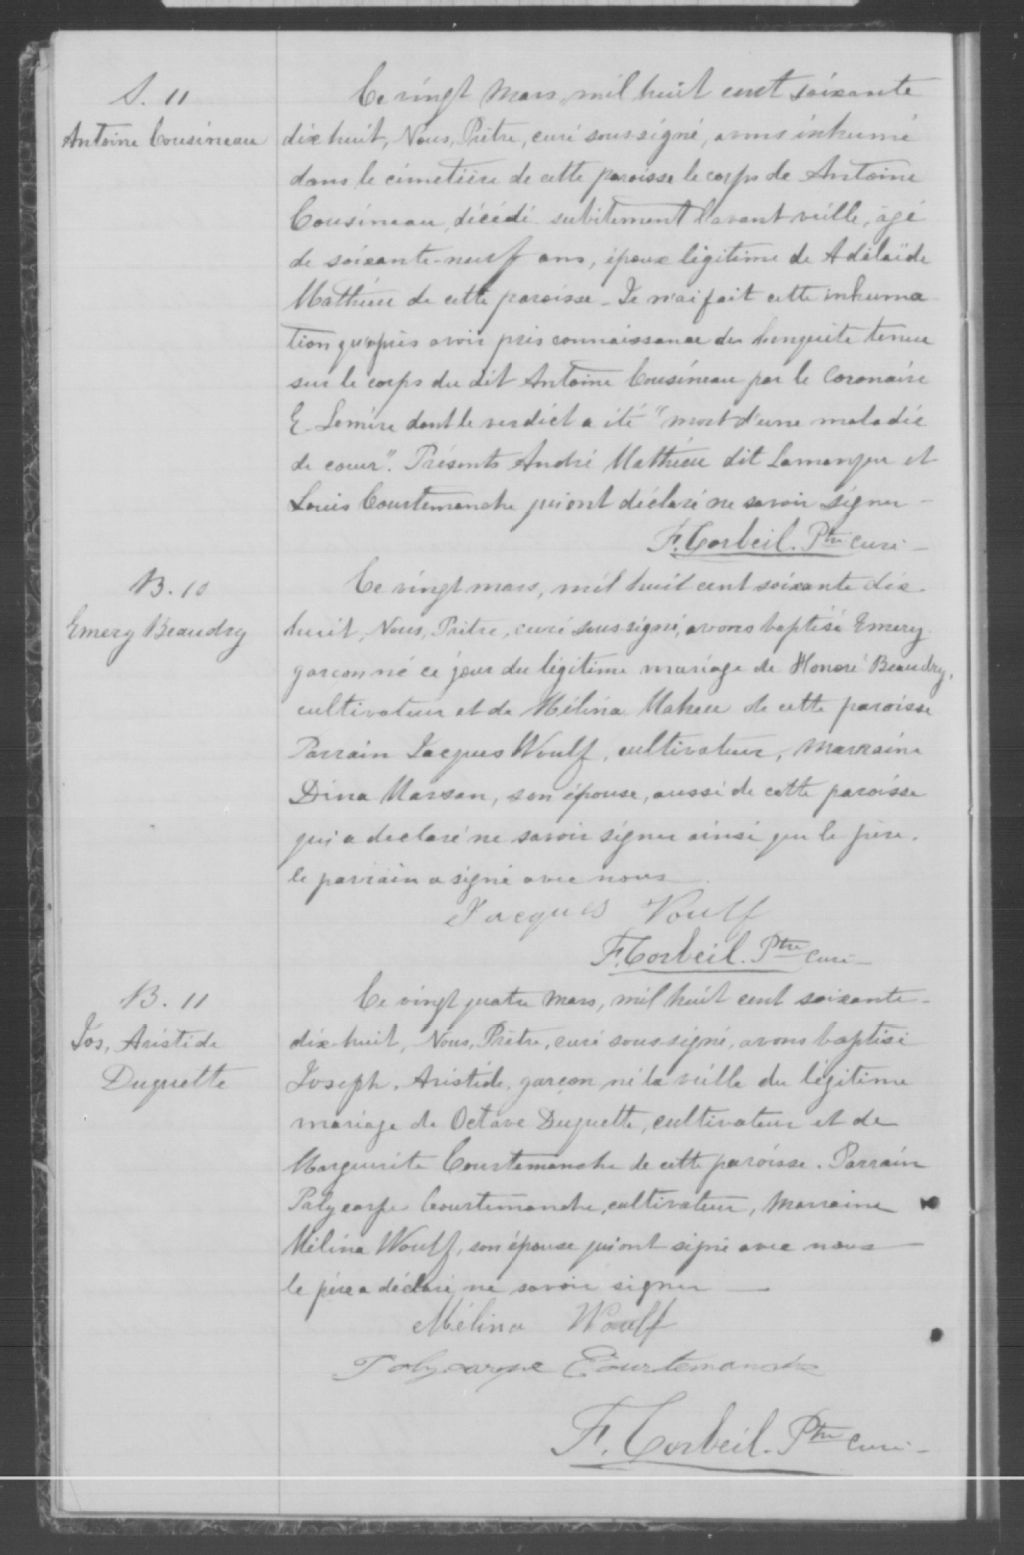 S. 11
Antoine Cousineau
Ce vingt Mars, mil huit cent soixante
dix huit, Nous, Prêtre, curé soussigné, avons inhumé
dans le cimetière de cette paroisse le corps de Antoine
Cousineau, décédé subitement l'avant veille, âgé
de soixante-neuf ans, époux légitime de Adélaïde
Mathieu de cette paroisse - Je n'ai fait cette inhuma
tion qu'après avoir pris connaissance de l'enquête tenue
sur le corps du dit Antoine Cousineau par le Coronaire
E. Lemire dont le verdict a été "mort d'une maladie
de coeur". Présents André Mathieu dit Lamanque et
Louis Courtemanche qui ont déclaré ne savoir signer -
F. Corbeil. Ptre curé -
B. 10
Emery Beaudry
Ce vingt mars, mil huit cent soixante dix
huit, Nous, Prêtre, curé soussigné, avons baptisé Emery
garçon né ce jour du légitime mariage de Honoré Beaudry,
cultivateur et de Mélina Maheu de cette paroisse
Parrain Jacques Woulf, cultivateur, Marraine
Dina Marsan, son épouse, aussi de cette paroisse
qui a declaré ne savoir signer ainsi que le père.
le parrain a signé avec nous
Jacques Voulf
F. Corbeil. Ptre curé -
B. 11
Jos, Aristide
Duquette
Ce vingt quatre Mars, mil huit cent soixante -
dix-huit, Nous, Prêtre, curé soussigné, avons baptisé
Joseph, Aristide, garçon, né la veille du légitime
mariage de Octave Duquette, cultivateur et de
Marguerite Courtemanche de cette paroisse. Parrain
Polycarpe Courtemanche, cultivateur, Marraine
Mélina Woulf, son épouse qui ont signé avec nous
le père a déclaré ne savoir signer -
Mélina Woulf
Polycarpe Courtemanche
F. Corbeil. Ptre curé -